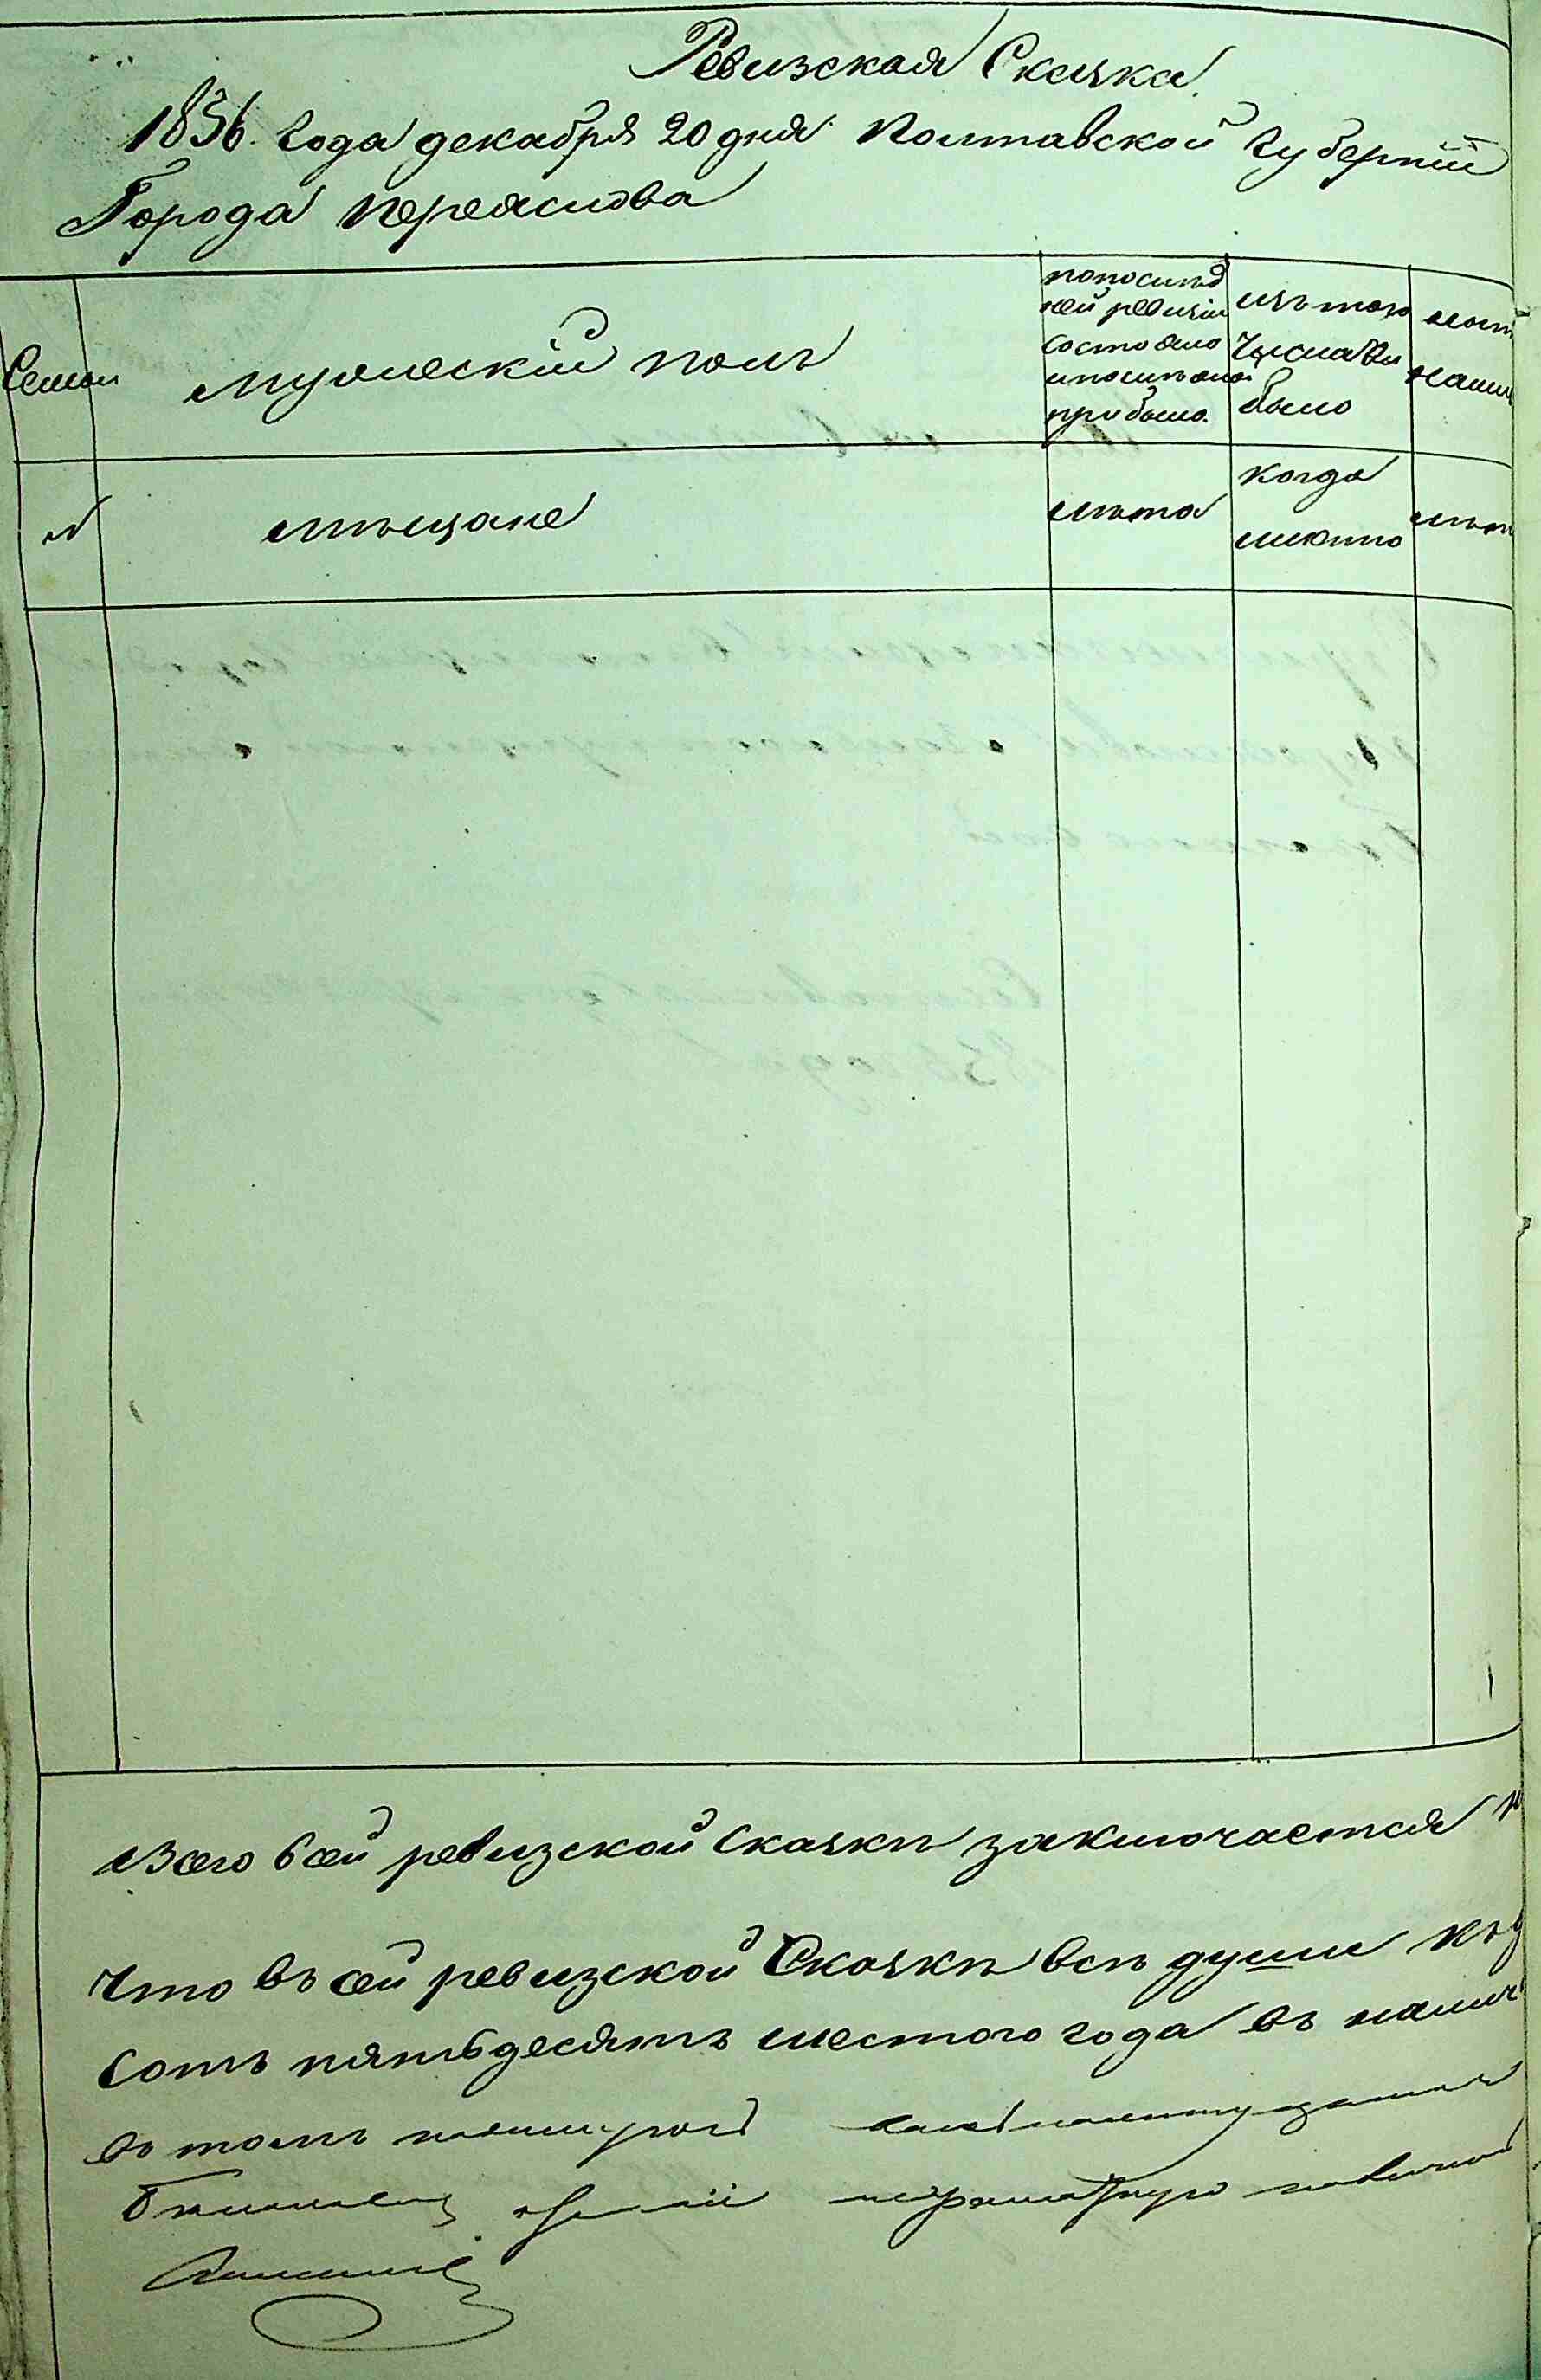 Ревизская Скаска.
1856. Года декабря 20 дня Полтавской Губерніи
Города Переяслова
Семьи
мужескій полъ
попослѣд
ней ревизіи
состояло
ипослѣ онои
прибыло.
изъ того
Числа вы
было
наличн
№
мѣщане
лѣта
когда
имянно
лѣт
Всего всей ревизской Скаски заключается
Что въ сей ревизской Скаски всѣ души къ
Сотъ пятьдесятъ шестого года въ налич
въ томъ